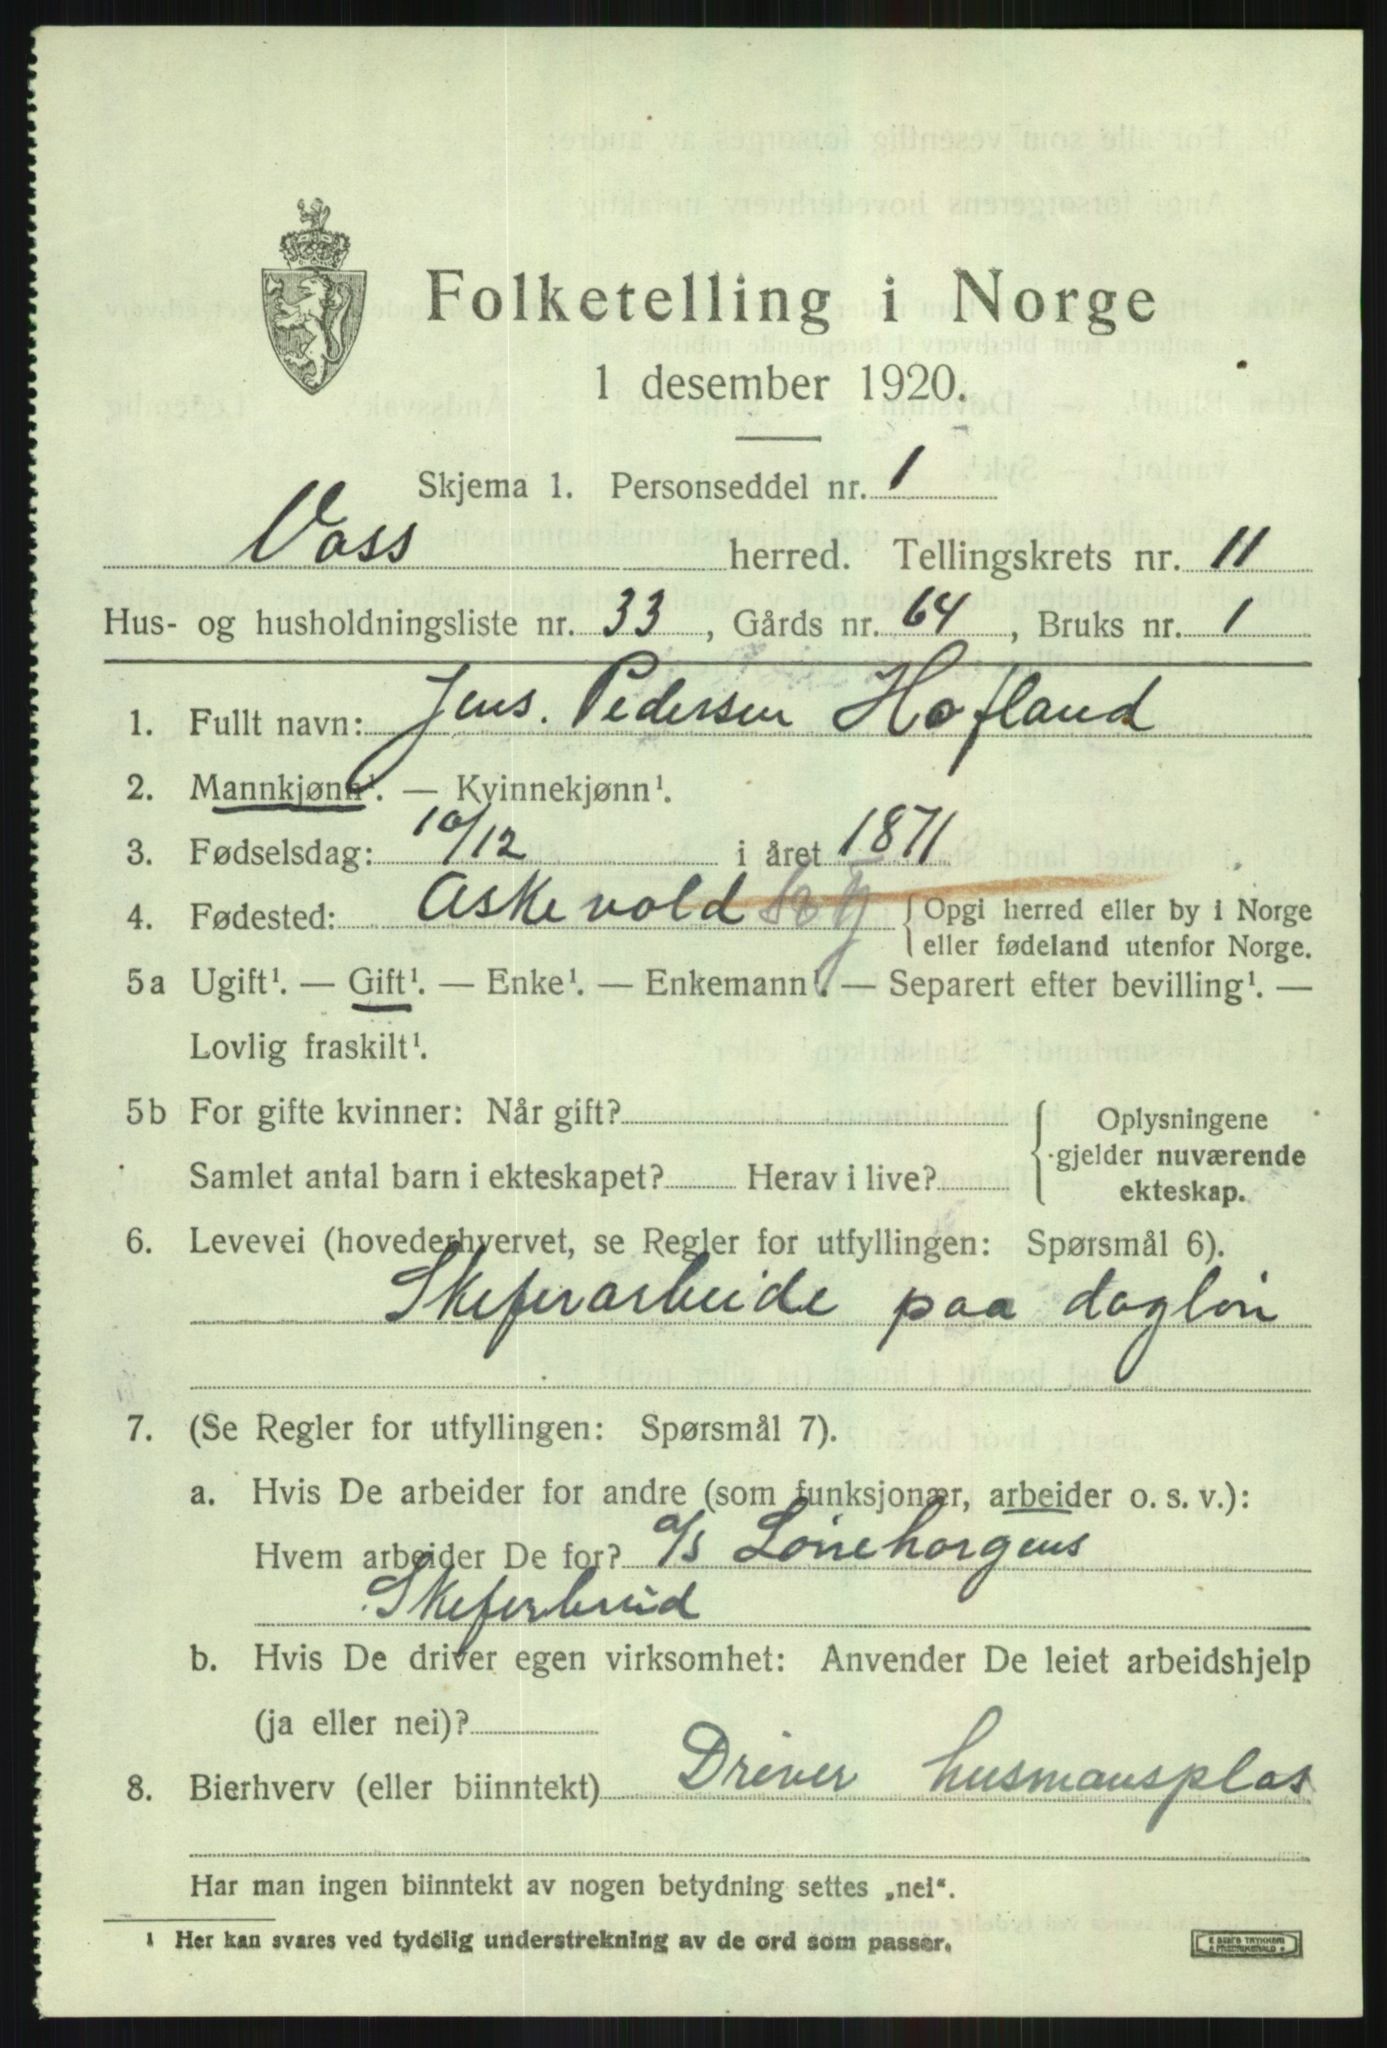 Folketelling i Norge
1 desember 1920.
Skjema 1. Personseddel nr. 1
Voss herred. Tellingskrets nr. 11
Hus- og husholdningsliste nr. 33, Gårds nr. 64, Bruks nr. 1
1. Fullt navn: Jens. Pedersen Hofland
2. Mannkjønn¹. — Kvinnekjønn¹.
3. Fødselsdag: 10/12 i året 1871
4. Fødested: Askevold { Opgi herred eller by i Norge
eller fødeland utenfor Norge.
5a Ugift¹. — Gift¹. — Enke¹. — Enkemann¹. — Separert efter bevilling¹. —
Lovlig fraskilt¹.
5b For gifte kvinner: Når gift? { Oplysningene
gjelder nuværende
Samlet antal barn i ekteskapet? Herav i live? ekteskap.
6. Levevei (hovederhvervet, se Regler for utfyllingen: Spørsmål 6).
Skeferarbeide paa dagløn
7. (Se Regler for utfyllingen: Spørsmål 7).
a. Hvis De arbeider for andre (som funksjonær, arbeider o. s. v.):
Hvem arbeider De for? a/s Lønehorgens
Skeferbrud
b. Hvis De driver egen virksomhet: Anvender De leiet arbeidshjelp
(ja eller nei)?
8. Bierhverv (eller biinntekt) Driver husmansplas
Har man ingen biinntekt av nogen betydning settes „nei“.
¹ Her kan svares ved tydelig understrekning av de ord som passer.